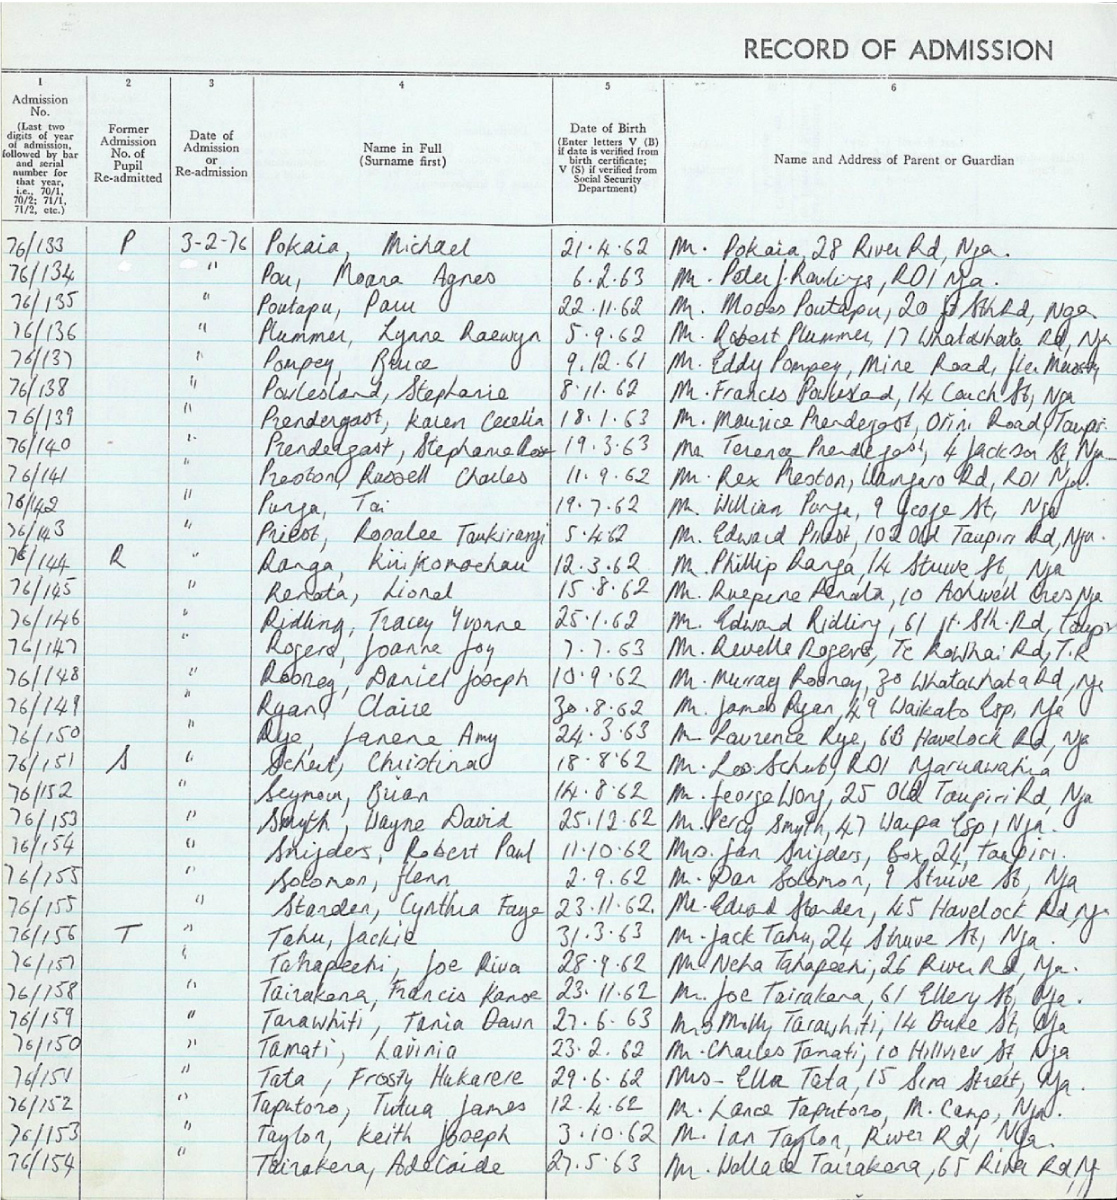 RECORD OF ADMISSION
1 2 3 4 5 6
Admission No. (Last two digits of year of admission, followed by bar and serial number for that year, i.e., 70/1, 70/2; 71/1, 71/2, etc.)
Former Admission No. of Pupil Re-admitted
Date of Admission or Re-admission
Name in Full (Surname first)
Date of Birth (Enter letters V (B) if date is verified from birth certificate; V (S) if verified from Social Security Department)
Name and Address of Parent or Guardian
76/133 P 3-2-76 Pokaia, Michael 21.4.62 Mr. Pokaia, 28 River Rd, Nga.
76/134 " Pou, Moana Agnes 6.2.63 Mr. Peter J. Rawlings, RD1 Nga.
76/135 " Poutapu, Paru 22.11.62 Mr. Moses Poutapu, 20 Sth Rd, Nga.
76/136 " Plummer, Lynne Raewyn 5.9.62 Mr. Robert Plummer, 17 Whatawhata Rd, Nga
76/137 " Pompey, Bruce 9.12.61 Mr. Eddy Pompey, Mine Road, Glen Murray
76/138 " Powlesland, Stephanie 8.11.62 Mr. Francis Powlesland, 14 Couch St, Nga
76/139 " Prendergast, Karen Cecelia 18.1.63 Mr. Maurice Prendergast, Orini Road, Taupiri
76/140 " Prendergast, Stephanie Rose 19.3.63 Mr. Terence Prendergast, 4 Jackson St, Nga
76/141 " Preston, Russell Charles 11.9.62 Mr. Rex Preston, Wangaro Rd, RD1 Nga.
76/142 " Punga, Tai 19.7.62 Mr. William Punga, 9 George St, Nga
76/143 " Priest, Rosalee Taukirangi 5.4.62 Mr. Edward Priest, 102 Old Taupiri Rd, Nga.
76/144 R " Ranga, 12.3.62 Mr. Phillip Ranga, 14 Struve St, Nga
76/145 " Renata, Lionel 15.8.62 Mr. Ruepene Renata, 10 Ashwell Cres Nga
76/146 " Ridling, Tracey Yvonne 25.1.62 Mr. Edward Ridling, 61 Gt. Sth. Rd, Taupiri
76/147 " Rogers, Joanne Joy 7.7.63 Mr. Revelle Rogers, Te Rowhai Rd, T.R
76/148 " Rooney, Daniel Joseph 10.9.62 Mr. Murray Rooney, 30 Whatawhata Rd, Nga
76/149 " Ryan, Claire 30.8.62 Mr. James Ryan, 49 Waikato Esp, Nga
76/150 " Rye, Janene Amy 24.3.63 Mr. Lawrence Rye, 6B Havelock Rd, Nga
76/151 S " Schut, Christina 18.8.62 Mr. Leo Schut, RD1 Ngaruawahia
76/152 " Seymour, Brian 14.8.62 Mr. George Wong, 25 Old Taupiri Rd, Nga
76/153 " Smyth, Wayne David 25.12.62 Mr. Percy Smyth, 47 Waipa Esp, Nga.
76/154 " Snijders, Robert Paul 11.10.62 Mrs. Jan Snijders, Box 24, Taupiri.
76/155 " Solomon, Glenn 2.9.62 Mr. Dan Solomon, 9 Struve St, Nga
76/155 " Standen, Cynthia Faye 23.11.62. Mr. Edward Standen, 45 Havelock Rd, Nga
76/156 T " Tahu, Jackie 31.3.63 Mr. Jack Tahu, 24 Struve St, Nga.
76/157 " Tahapeehi, Joe Riva 28.9.62 Mr. Neha Tahapeehi, 26 River Rd, Nga.
76/158 " Tairakena, Francis Kanoe 23.11.62 Mr. Joe Tairakena, 61 Ellery St, Nga.
76/159 " Tarawhiti, Tania Dawn 27.6.63 Mrs Molly Tarawhiti, 14 Duke St, Nga
76/150 " Tamati, Lavinia 23.2.62 Mr. Charles Tamati, 10 Hillview St, Nga
76/151 " Tata, Frosty Hukarere 29.6.62 Mrs- Ella Tata, 15 Street, Nga.
76/152 " Taputoro, Tutua James 12.4.62 Mr. Lance Taputoro, M. Camp, Nga.
76/153 " Taylor, Keith Joseph 3.10.62 Mr. Ian Taylor, River Rd, Nga.
76/154 " Tairakena, Adelaide 27.5.63 Mr. Wallace Tairakena, 65 River Rd,